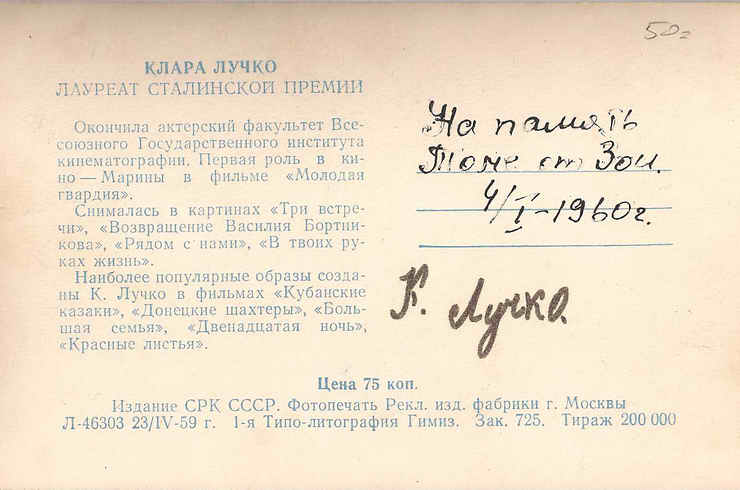 50=
КЛАРА ЛУЧКО
ЛАУРЕАТ СТАЛИНСКОЙ ПРЕМИИ
Окончила актерский факультет Все-
союзного Государственного института
кинематографии. Первая роль в ки-
но — Марины в фильме «Молодая
гвардия».
Снималась в картинах «Три встре-
чи», «Возвращение Василия Бортни-
кова», «Рядом с нами», «В твоих ру-
ках жизнь».
Наиболее популярные образы созда-
ны К. Лучко в фильмах «Кубанские
казаки», «Донецкие шахтеры», «Боль-
шая семья», «Двенадцатая ночь»,
«Красные листья».
На память
Томе от Зои.
4/I-1960г.
К. Лучко.
Цена 75 коп.
Издание СРК СССР. Фотопечать Рекл. изд. фабрики г. Москвы
Л-46303 23/IV-59 г. 1-я Типо-литография Гимиз. Зак. 725. Тираж 200 000